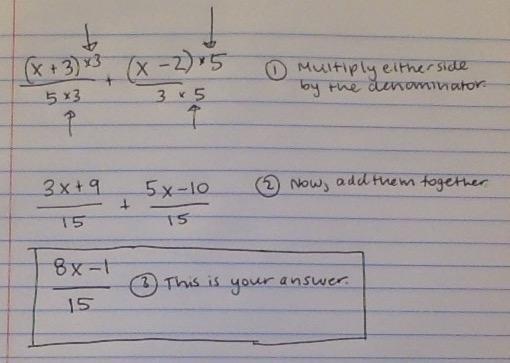 (x + 3) x3 / 5 x3 + (x - 2) x5 / 3 x 5
① Multiply either side
by the denominator.
3x+9 / 15 + 5x-10 / 15
② Now, add them together.
8x-1 / 15
③ This is your answer.